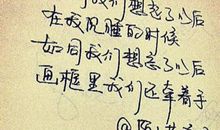 我们想忘了以后
在我沉睡的时候
如同我们想忘了以后
画框里我们还牵着手